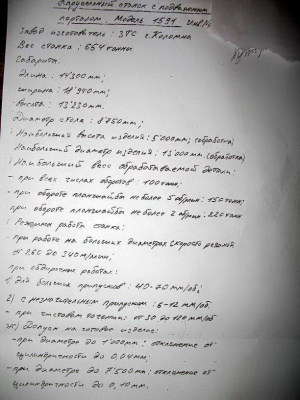 Карусельный станок с подвижным
порталом. Модель 1591 Инв№
Завод изготовитель: ЗТС г. Коломна
Вес станка: 654 тонны
Габариты:
длина: 14'300мм;
ширина: 18'940мм;
высота: 13'230мм.
Диаметр стола: 8'750мм;
Наибольший высота изделий: 5'000мм; (обработка)
Наибольший диаметр изделий: 13'000мм (обработка)
Наибольший вес обрабатываемой детали:
- при всех числах оборотов: 100тонн;
- при обороте планшайбы не более 5 об/мин: 150тонн;
при обороте планшайбы не более 2 об/мин: 220тонн
Режимы работы станка:
при работе на больших диаметрах скорость резания
от 260 до 340м/мин;
при обдирочных работах:
1) Для больших припусков: 40-70мм/об;
2) с незначительным припуском: 6-12мм/об
- при чистовом точении: от 30 до 120мм/об
Допуск на готовое изделие:
- при диаметре до 1'000мм: отклонение от
цилиндричности до 0,04мм;
- при диаметре до 7'500мм: отклонение от
цилиндричности до 0,10мм.